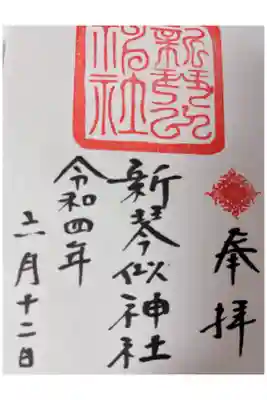 奉拝
新琴似
神社
新琴似神社
令和四年
六月十二日